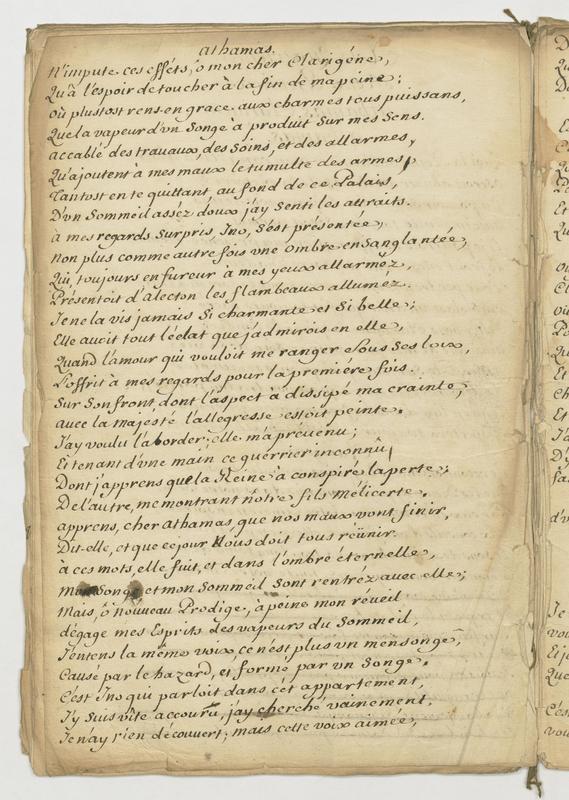 athamas.
N'impute ces effets, ô mon cher Clarigéne,
Qu'à l'espoir de toucher à la fin de ma peine;
Où plustost rens en grace aux charmes tous puissans,
Que la vapeur d'vn Songe à produit Sur mes Sens.
accablé des travaux, des Soins, et des allarmes,
Qu'ajoutent à mes maux le tumulte des armes,
Tantost en te quittant, au fond de ce Palais,
D'vn Sommeil assez doux j'ay Senti les attraits.
à mes regards Surpris, Ino, s'est présentée,
non plus comme autre fois vne Ombre ensanglantée,
Qui, toujours en fureur à mes yeux allarmez,
Présentoit d'alecton les flambeaux allumez.
Je ne la vis jamais Si charmante et Si belle;
Elle avoit tout l'éclat que j'admirois en elle,
Quand l'amour qui vouloit me ranger Sous Ses loix,
L'offrit à mes regards pour la premiére fois.
Sur Son front, dont l'aspect à dissipé ma crainte,
avec la majesté l'allegresse estoit peinte.
J'ay voulu l'aborder; elle m'a prévenu;
Et tenant d'vne main ce guérrier inconnû,
Dont j'apprens que la Reine à conspiré la perte;
De l'autre, me montrant nôtre fils mélicerte.
apprens, cher athamas, que nos maux vont finir,
Dit-elle, et que ce jour Nous doit tous réünir.
à ces mots, elle fuit, et dans l'ombre éternelle,
Mon Songe et mon Sommeil Sont rentréz avec elle;
Mais, ô nouveau Prodige, à peine mon réveil
dégage mes Esprits des vapeurs du Sommeil,
J'entens la même voix, ce n'est plus vn mensonge,
Causé par le hazard, et formé par vn Songe.
C'est Ino qui parloit dans cét appartement,
J'y Suis vîte accouru, j'ay cherché vainement,
Je n'ay rien découvert; mais cette voix aimée,